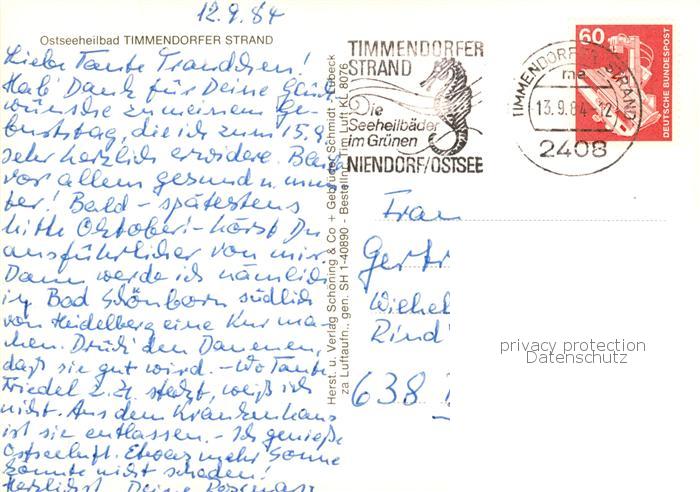 12.9.84
Ostseeheilbad TIMMENDORFER STRAND
Liebe Tante Traudchen!
Hab' Dank für Deine Glück-
wünsche zu meinem Ge-
burtstag, die ich zum 15.9.
sehr herzlich erwidere. Bleib
vor allem gesund u. mun-
ter! Bald - spätestens
Mitte Oktober! - hörst Du
ausführlicher von mir.
Dann werde ich nämlich
in Bad Schönborn südlich
von Heidelberg eine Kur ma-
chen. Drück' den Daumen,
daß sie gut wird. - Wo Tante
Friedel z. Zt. steckt, weiß ich
nicht. Aus dem Krankenhaus
ist sie entlassen. - Ich genieße
Ostseeluft. Etwas mehr Sonne
könnte nicht schaden!
Herzlichst Deine
Herst. u. Verlag Schöning & Co + Gebrüder Schmidt, Lübeck
za Luftaufn., gen. SH 1-40890 - Bestelln. Tim Luft KL 8076
TIMMENDORFER
STRAND
Die
Seeheilbäder
im Grünen
NIENDORF/OSTSEE
TIMMENDORFER STRAND
ma
13.9.84-12
2408
60
DEUTSCHE BUNDESPOST
Frau
Gertr
Wilhel
Rind'
638
privacy protection
Datenschutz